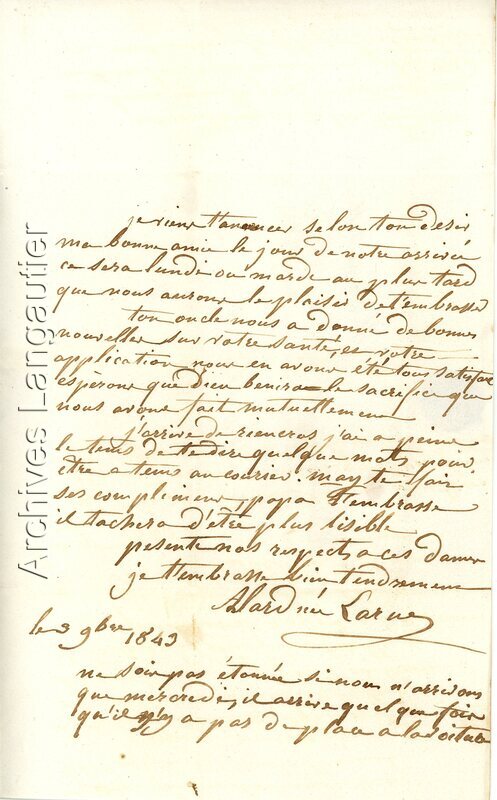 je viens t'anoncer selon ton desir
ma bonne amie le jour de notre arrivée
ce sera lundi ou mardi au plus tard
que nous aurons le plaisir de t'embrasse
ton oncle nous a donné de bonnes
nouvelles sur votre santé, et votre
application nous en avons été tous satisfai
espérons que Dieu benira le sacrifice que
nous avons fait mutuellement
j'arrive de rieucros j'ai a peine
le tems de te dire quelque mots pour
être a tems au courier. may te fair
ses complimens, papa t'embrasse
il tachera d'être plus lisible
pesente nos respects a ces dames
je t'embrasse bien tendrement
Alard née Larue
le 3 9bre 1843
ne sois pas étonnée si nous n'arrivons
que mercredi, il arrive quelque fois
qu'il n'y a pas de place a la voiture
Archives Langautier